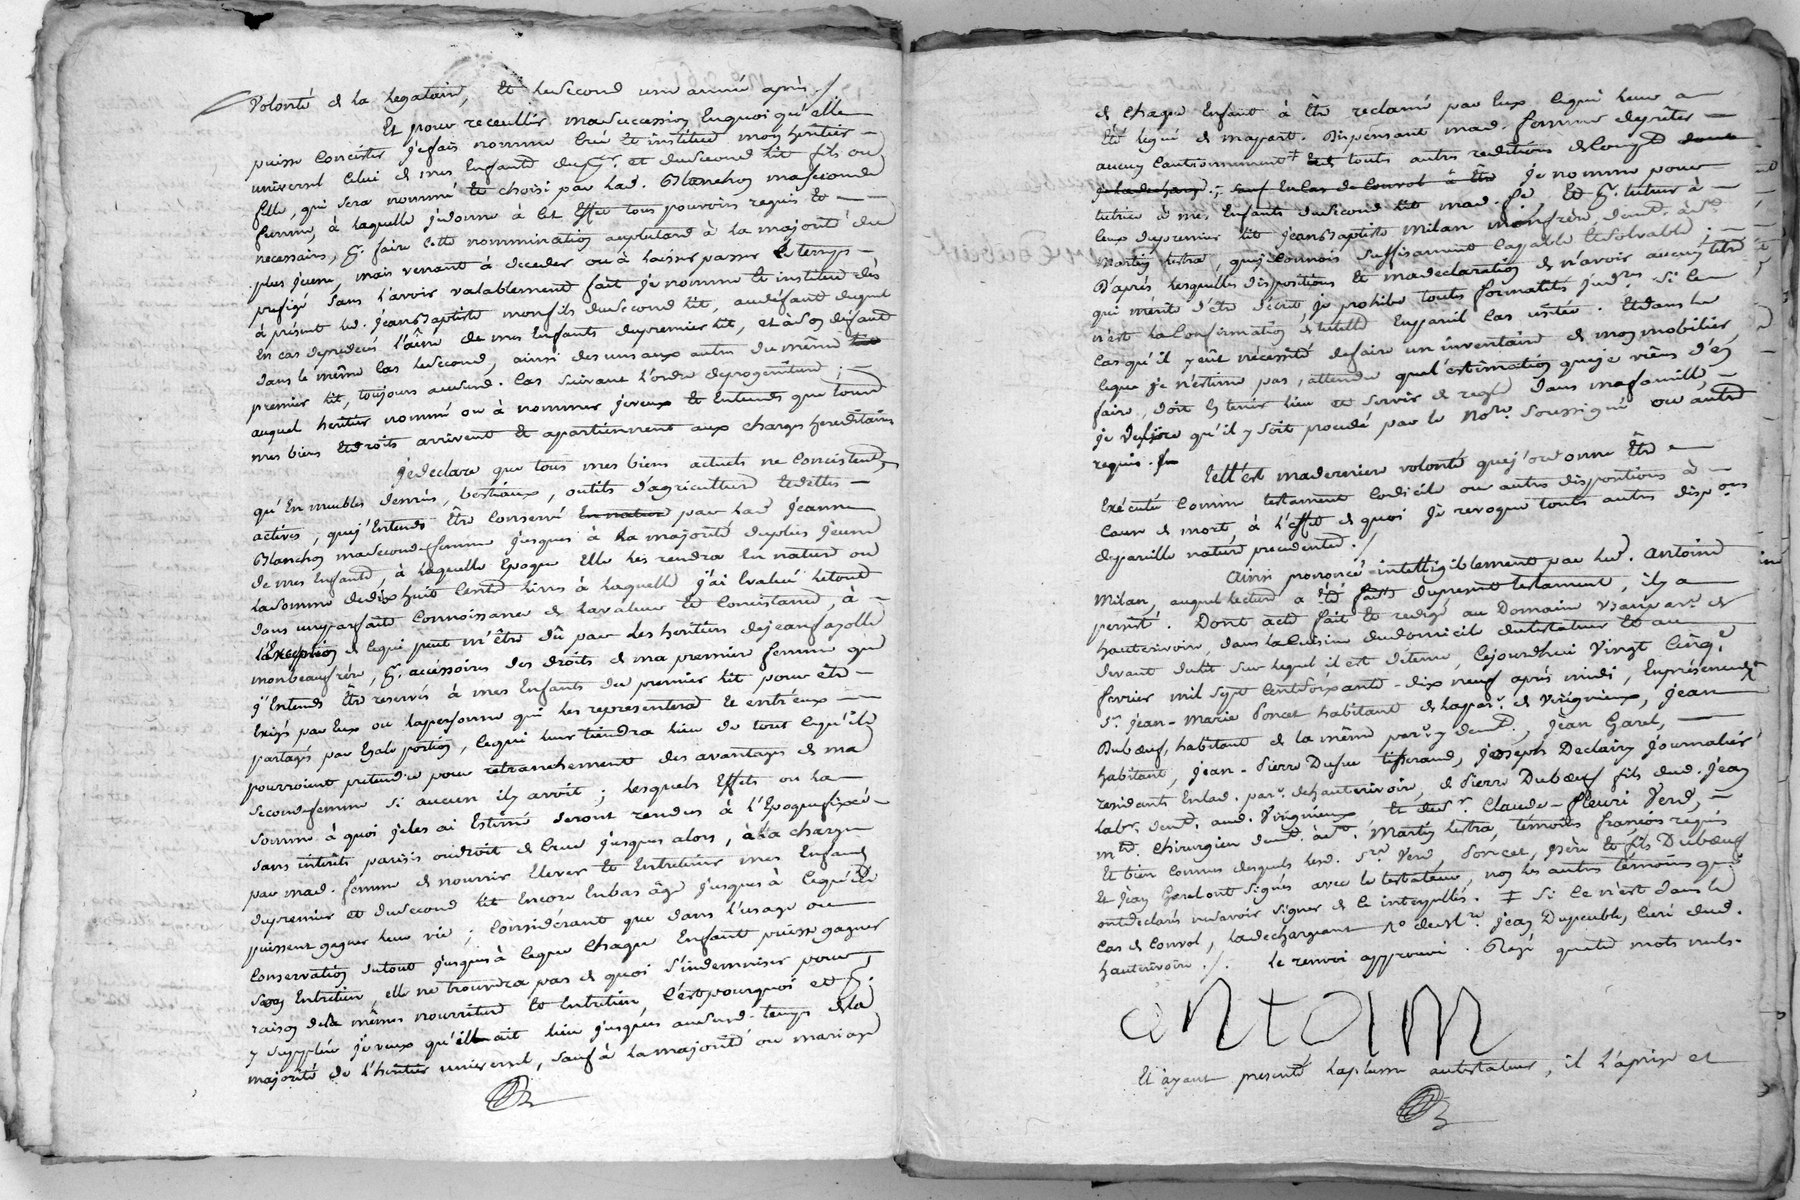 volonté de la legataire, et le second une année après./
Et pour receuillir ma succession en quoi qu'elle
puisse concister je fais nomme crée et institue mon heritier
universel celui de mes enfants du per. et du second lit fils ou
fille, qui sera nommé et choisi par lad. Blanchon ma seconde
femme, à laquelle je donne à cet effet tous pouvoirs requis et
necessaires, pr. faire cette nommination au plutard à la majorité du
plus jeune, mais venant à deceder ou à laisser passer le temps
prefigé sans l'avoir valablement fait je nomme et institue dès
à présent led. jean Baptiste mon fils du second lit, au défaut duquel
en cas de predecès l'ainé de mes enfants du premier lit, et à son défaut
dans le même cas le second, ainsi des uns aux autres du même
premier lit, toujours aususd. cas suivant l'ordre de progéniture;
auquel heritier nommé ou à nommer je veux et entends que tous
mes biens et droits arrivent et apartiennent aux charges hereditaires
je declare que tous mes biens actuels ne concistent,
qu'en meubles denrés, bestiaux, outils d'agriculture et dettes
actives, que j'entends être conservé en nature par lad. jeanne
Blanchon ma seconde femme jusques à la majorité du plus jeune
de mes enfants, à laquelle epoque elle les rendra en nature ou
la somme de dix huit cents livres à laquelle j'ai évalué le tout
dans une parfaite connoissance de la valeur et concistance, à
l'exception de ce qui peut m'être dû par les heritiers de jean fayolle
mon beaufrère, pr. accessoires des droits de ma premier femme que
j'entends être reservés à mes enfants du premier lit pour être
exigés par eux ou la personne qui les representera et entr'eux
partagés par egale portion, ce qui leur tiendra lieu de tout ce qu'ils
pourroient pretendre pour retranchement des avantages de ma
seconde femme si aucun il y avoit; lesquels effets ou la
somme à quoi je les ai estimé seront rendus à l'epoque fixée
sans intérêts parisis ou droit de crue jusques alors, à la charge
par mad. femme de nourrir elever et entretenir mes enfans
du premier et du second lit encore en bas âge jusques à ce qu'ils
puissent gagner leur vie; considérant que dans l'usage ou
conservation surtout jusques à ce que chaque enfant puisse gagner
son entretien, elle ne trouvera pas de quoi s'indemniser pour
raison de la même nourriture et entretien, c'est pourquoi et pr.
y suppleer je veux qu'elle ait lieu jusques aususd. temps de la
majorité de l'heritier universel, sauf à la majorité ou mariage
de chaque enfant à être reclamé par eux ce qui leur a
été legué de ma part. Dispensant mad. femme de prêter
aucun cautionnement ‡ et de toute autre reddition de compte dont
je la decharge, sauf en cas de convol à être je nomme pour
tutrice à mes enfants du second lit mad. fe, et pr. tuteur à
ceux du premier lit jean Baptiste Milan mon frère, demt. à St.
Martin lestra, que je connois suffisament capable et solvable;
D'après lesquelles dispositions et ma declaration de n'avoir aucun titre
qui mérite d'être décrit, je prohibe toutes formalités judres. si ce
n'est la confirmation de tutelle en pareil cas usitée. Et dans le
cas qu'il y eût nécessité de faire un inventaire de mon mobilier
ce que je n'estime pas, attendu que l'estimation que je viens d'en
faire, doit en tenir lieu et servir de regle dans ma famille,
je desire qu'il y soit procedé par le Nore. soussigné ou autre
requis.
Telle est ma derniere volonté que j'ordonne être
exécuté comme testament codicile ou autres dispositions à
cause de mort, à l'effet de quoi je revoque toute autres dispons
de pareille nature precedente./
Ainsi prononcé intelligiblement par led. Antoine
Milan, auquel lecture a été faite du present testament, il y a
persisté. Dont acte fait et redigé au Domaine Vauxare de
hauterivoire, dans la cuisine du domicile du testateur et au
devant du lit sur lequel il est détenu, ce jourd'hui vingt cinq
fevrier mil sept cent soixante-dix neuf après midi, en présence de
Sr. jean-Marie Poncet habitant de la par. de Virigneux, jean
Duboeuf, habitant de la même par. y demt., jean Garel,
habitant, jean-Pierre Dufue tisserand, joseph Declairy journalier
residants en lad. par. de hauterivoire, de Pierre Duboeuf fils dud. jean
labr. demt. aud. Virigneux et de Sr. Claude-fleuri Verd,
md. chirurgien demt. à St. Martin lestra, témoins françois requis
et bien connus desquels lesd. Srs Verd, Poncet, père et fils Duboeuf
et jean Garel ont signés avec le testateur, non les autres témoins qui
ont declarés ne savoir signer de ce interpellés. ‡ si ce n'est dans le
cas de convol, la dechargeant Mo. de Mre. jean Dupeuble, curé dud.
hauterivoire./. le renvoi approuvé. Rayé quatre mots nuls.
antoin
Et ayant presenté la plume au testateur, il l'a prise et